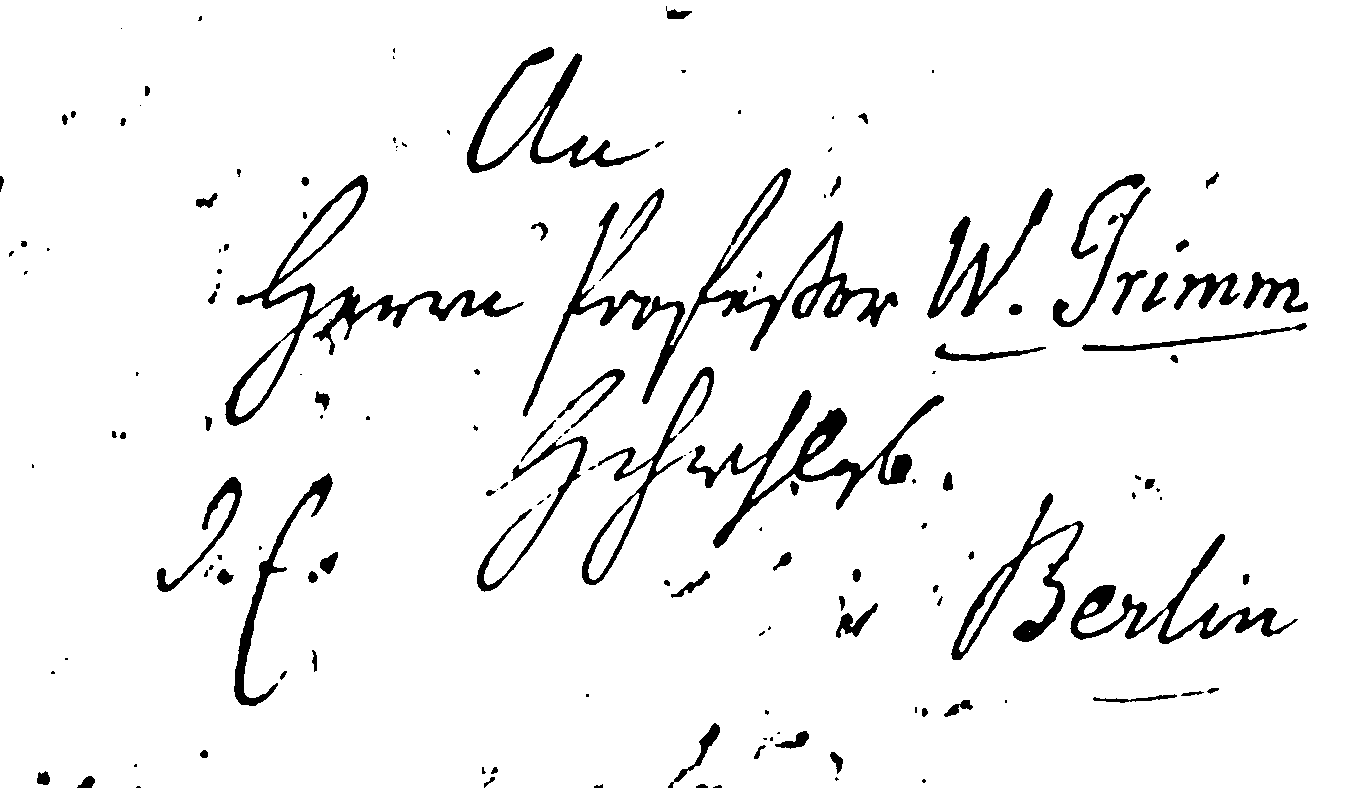 An
Herrn Professor W. Grimm
Hochwohlgb.
d. f.
in Berlin